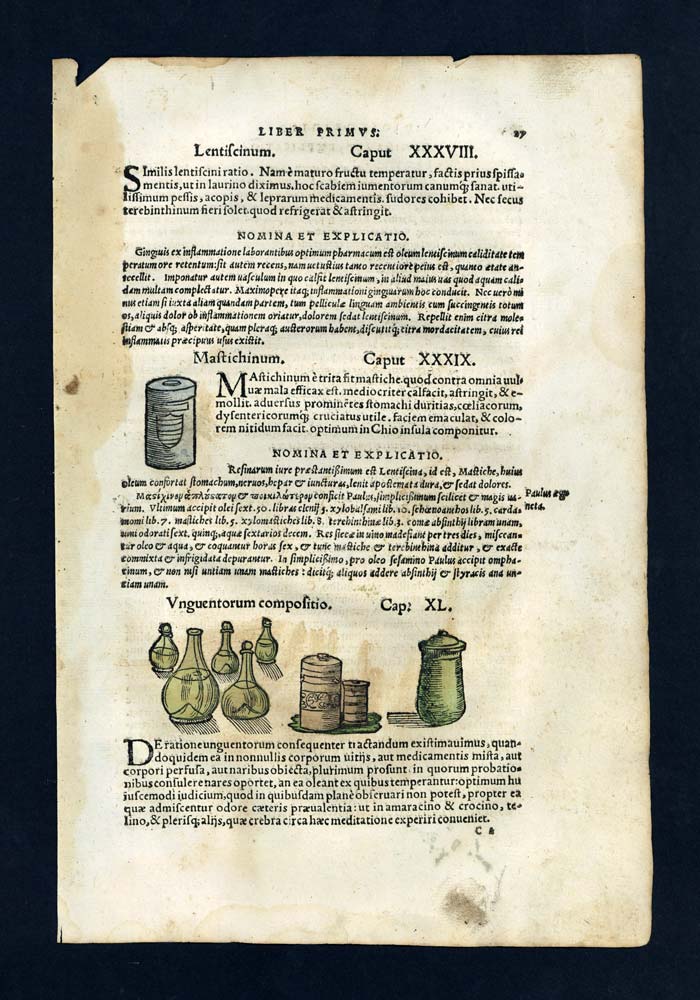 LIBER PRIMVS.
27
Lentiscinum. Caput XXXVIII.
SImilis lentiscini ratio. Nam è maturo fructu temperatur, factis prius spissa-
mentis, ut in laurino diximus. hoc scabiem iumentorum canumq; sanat. uti-
lissimum pessis, acopis, & leprarum medicamentis. sudores cohibet. Nec secus
terebinthinum fieri solet. quod refrigerat & astringit.
NOMINA ET EXPLICATIO.
Gingiuis ex inflammatione laborantibus optimum pharmacum est oleum lentiscinum caliditate tem
peratum ore retentum: sit autem recens, nam uetustius tanto recentiore peius est, quanto ætate an-
tecellit. Imponatur autem uasculum in quo calfit lentiscinum, in aliud maius uas quod aquam cali-
dam multam complectatur. Maximopere itaq; inflammationi gingiuarum hoc conducit. Nec uerò mi
nus etiam si iuxta aliam quandam partem, tum pelliculæ linguam ambientis cum succingentis totum
os, aliquis dolor ob inflammationem oriatur, dolorem sedat lentiscinum. Repellit enim citra mole-
stiam & absq; asperitate, quam pleraq; austerorum habent, discutitq; citra mordacitatem, cuius rei
inflammatis præcipuus usus existit.
Mastichinum. Caput XXXIX.
MAstichinum è trita fit mastiche. quod contra omnia uul-
uæ mala efficax est. mediocriter calfacit, astringit, & e-
mollit. aduersus prominẽtes stomachi duritias, cœliacorum,
dysentericorumq; cruciatus utile. faciem emaculat, & colo-
rem nitidum facit. optimum in Chio insula componitur.
NOMINA ET EXPLICATIO.
Resinarum iure præstantißimum est Lentiscina, id est, Mastiche, huius
oleum confortat stomachum, neruos, hepar & iuncturas, lenit apostemata dura, & sedat dolores.
conficit Paulus, simplicißimum scilicet & magis ua-
Paulus æge
rium. Vltimum accipit olei sext. 50. libras elenij 3. xylobalsami lib. 10. schœnoanthos lib. 5. carda-
neta.
momi lib. 7. mastiches lib. 5. xylomastiches lib. 8. terebinthinæ lib. 3. comæ absinthij libram unam,
uini odorati sext. quinq; aquæ sextarios decem. Res siccæ in uino madefiant per tres dies, miscean-
tur oleo & aqua, & coquantur horas sex, & tunc mastiche & terebinthina additur, & exacte
commixta & infrigidata depurantur. In simplicißimo, pro oleo sesamino Paulus accipit ompha-
cinum, & non nisi untiam unam mastiches: dicitq; aliquos addere absinthij & styracis ana un-
tiam unam.
Vnguentorum compositio. Cap: XL.
DE ratione unguentorum consequenter tractandum existimauimus, quan-
doquidem ea in nonnullis corporum uitijs, aut medicamentis mista, aut
corpori perfusa, aut naribus obiecta, plurimum prosunt. in quorum probatio-
nibus consulere nares oportet, an ea oleant ex quibus temperantur: optimum hu
iuscemodi iudicium, quod in quibusdam planè obseruari non potest, propter ea
quæ admiscentur odore cæteris præualentia: ut in amaracino & crocino, te-
lino, & plerisq; alijs, quæ crebra circa hæc meditatione experiri conueniet.
C 2